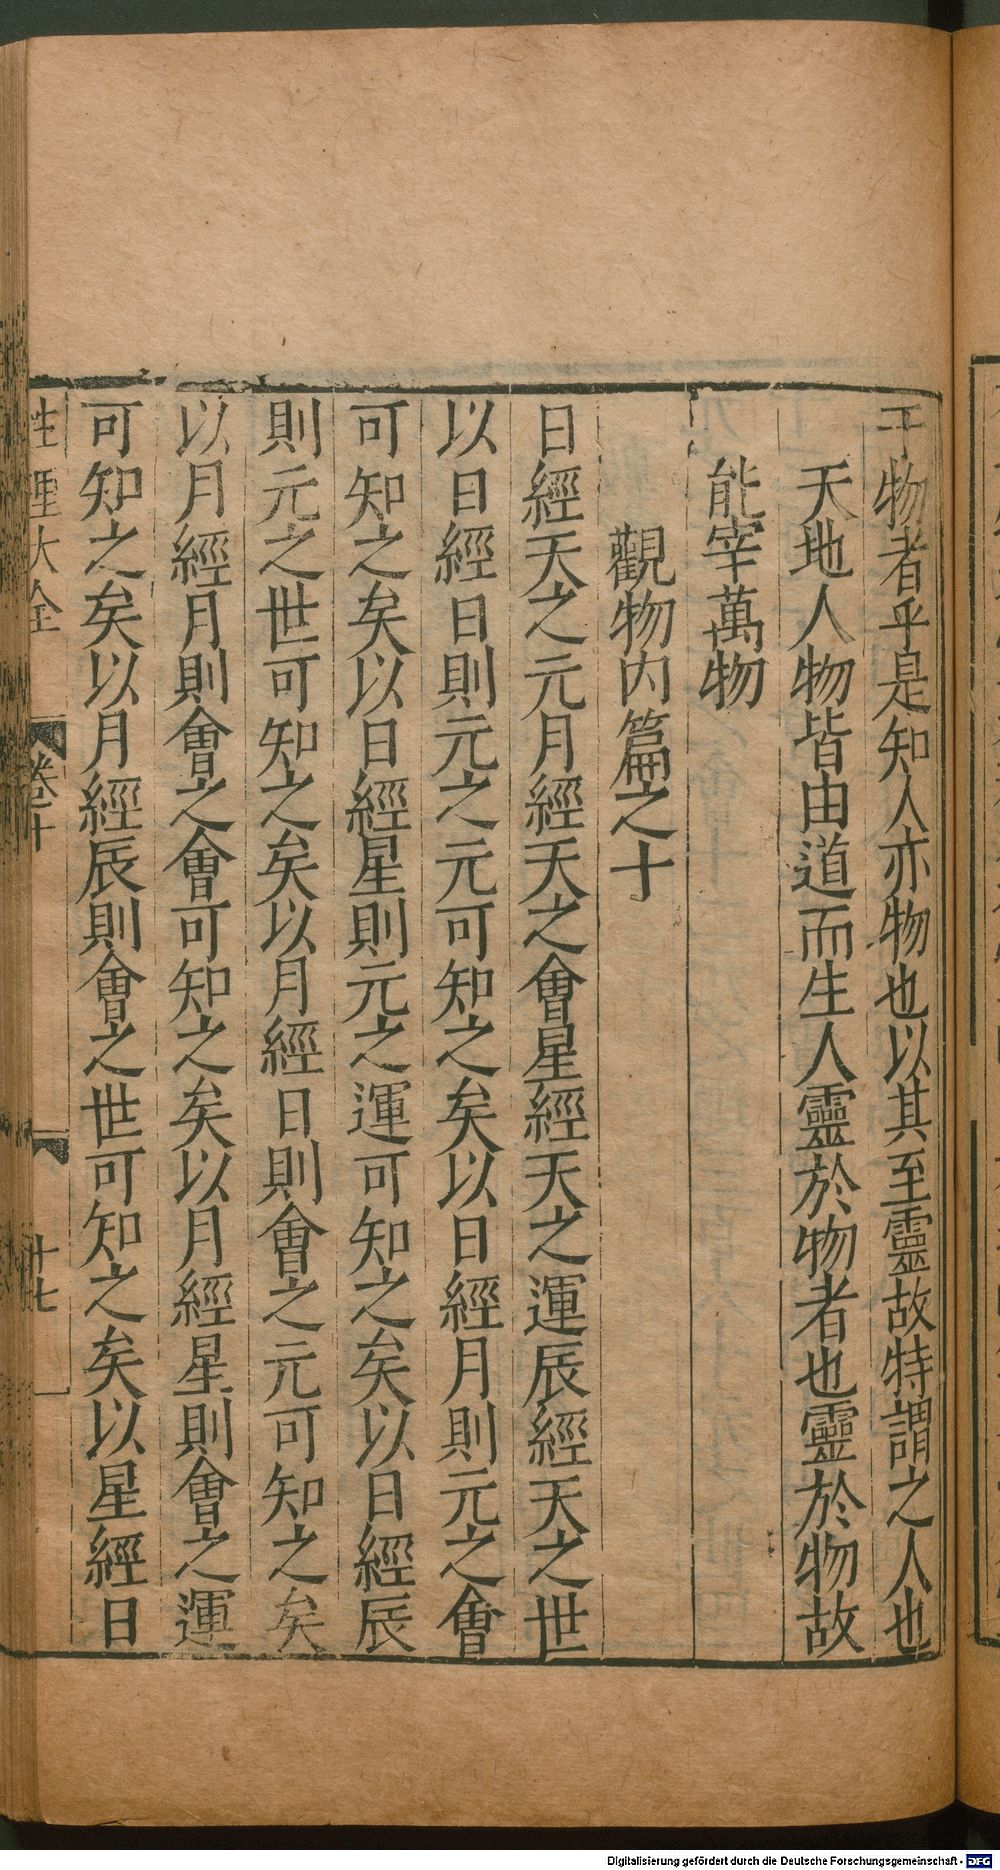 于物者乎是知人亦物也以其至靈故特謂之人也
天地人物皆由道而生人靈於物者也靈於物故
能宰萬物
觀物内篇之十
日經天之元月經天之會星經天之運辰經天之世
以日經日則元之元可知之矣以日經月則元之會
可知之矣以日經星則元之運可知之矣以日經辰
則元之世可知之矣以月經日則會之元可知之矣
以月經月則會之會可知之矣以月經星則會之運
可知之矣以月經辰則會之世可知之矣以星經日
性理大全 卷十 十七
Digitalisierung gefördert durch die Deutsche Forschungsgemeinschaft - DFG